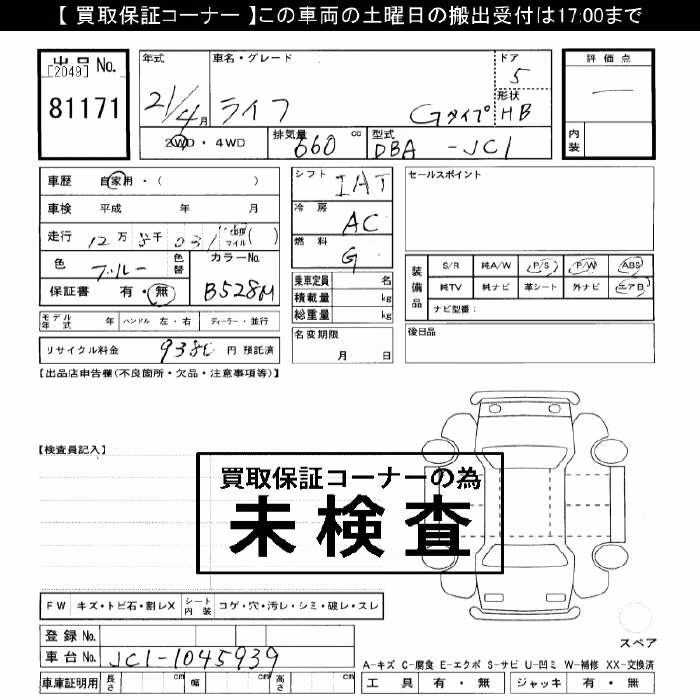 【 買取保証コーナー 】この車両の土曜日の搬出受付は17:00まで
出品 No.
[2049]
81171
年式 21/4月
車名・グレード ライフ Gタイプ
ドア 5
形状 HB
評価点 —
内装
2WD・4WD
排気量 660 cc
型式 DBA -JC1
車歴 自家用・( )
車検 平成 年 月
走行 12万 千 km マイル ( )
色 ブルー
色替
カラーNo. B528M
保証書 有・無
シフト IAT
冷房 AC
燃料 G
乗車定員 名
積載量 kg
総重量 kg
セールスポイント
装備品
S/R 純A/W P/S P/W ABS
純TV 純ナビ 革シート 外ナビ エアB
ナビ型番:
モデル年式 年 ハンドル 左・右 ディーラー・並行
リサイクル料金 円 預託済
名変期限
月 日
後日品
【出品店申告欄(不良箇所・欠品・注意事項等)】
【検査員記入】
買取保証コーナーの為
未検査
FW キズ・トビ石・割レX シート内装 コゲ・穴・汚レ・シミ・破レ・スレ
登録 No.
車台 No. JC1-1045939
車庫証明用 長さ cm 幅 cm 高さ cm
スペア
A-キズ C-腐食 E-エクボ S-サビ U-凹ミ W-補修 XX-交換済
工具 有・無 ジャッキ 有・無